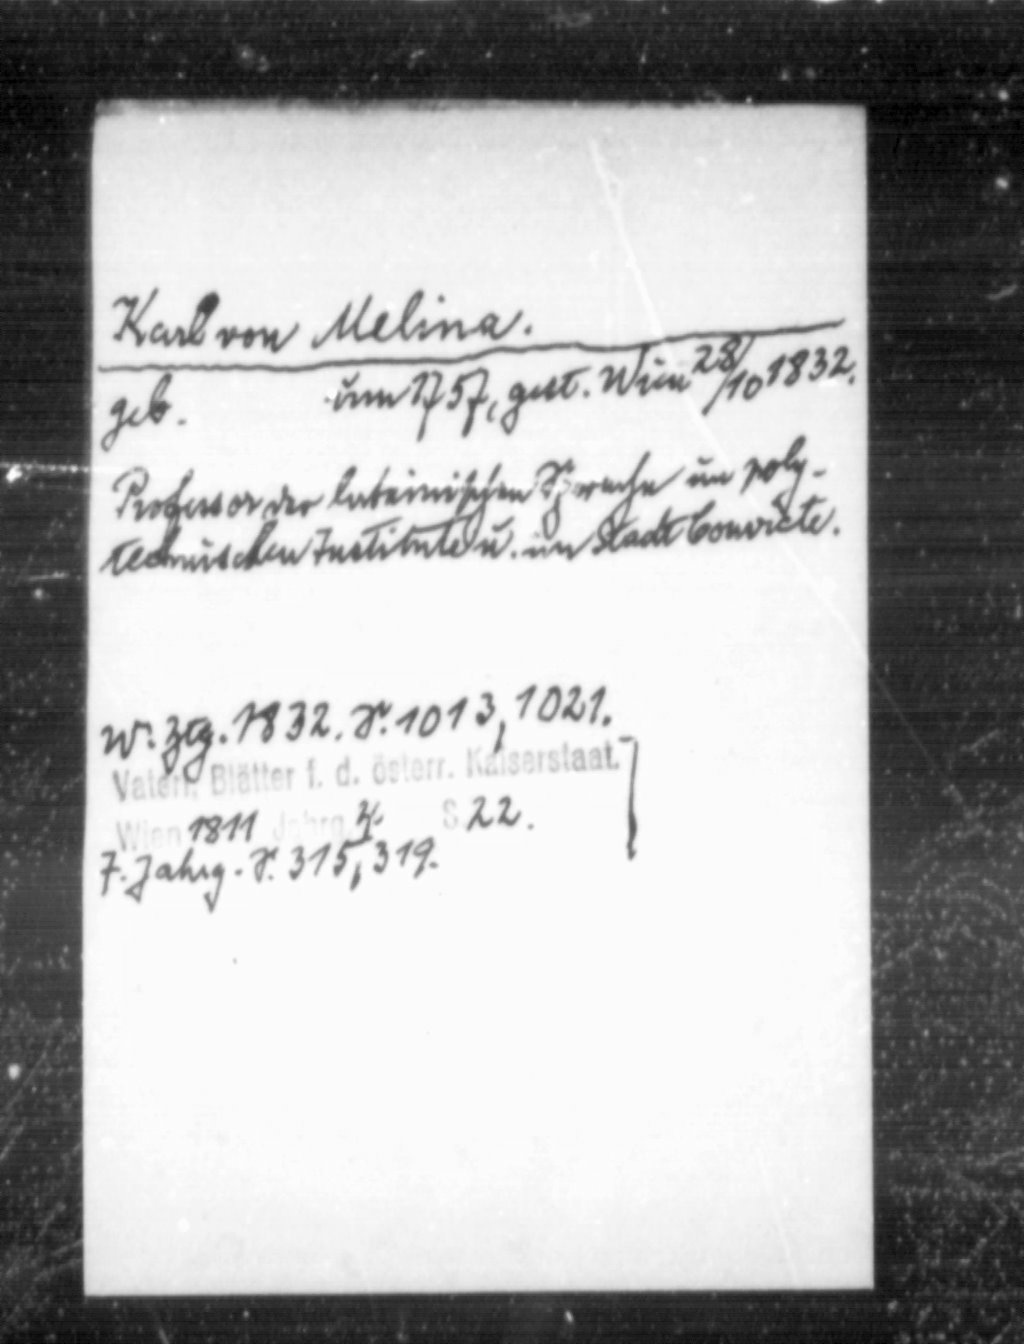 Karl von Melina.
geb. um 1757, gest. Wien 28/10 1832.
Professor der lateinischen Sprache im poly-
technischen Institute u. im Stadt Convicte.
W. Ztg. 1832. S. 1013, 1021.
Vaterl. Blätter f. d. österr. Kaiserstaat.
Wien 1811 Jahrg. 4. S. 22.
7. Jahrg. S. 315, 319.